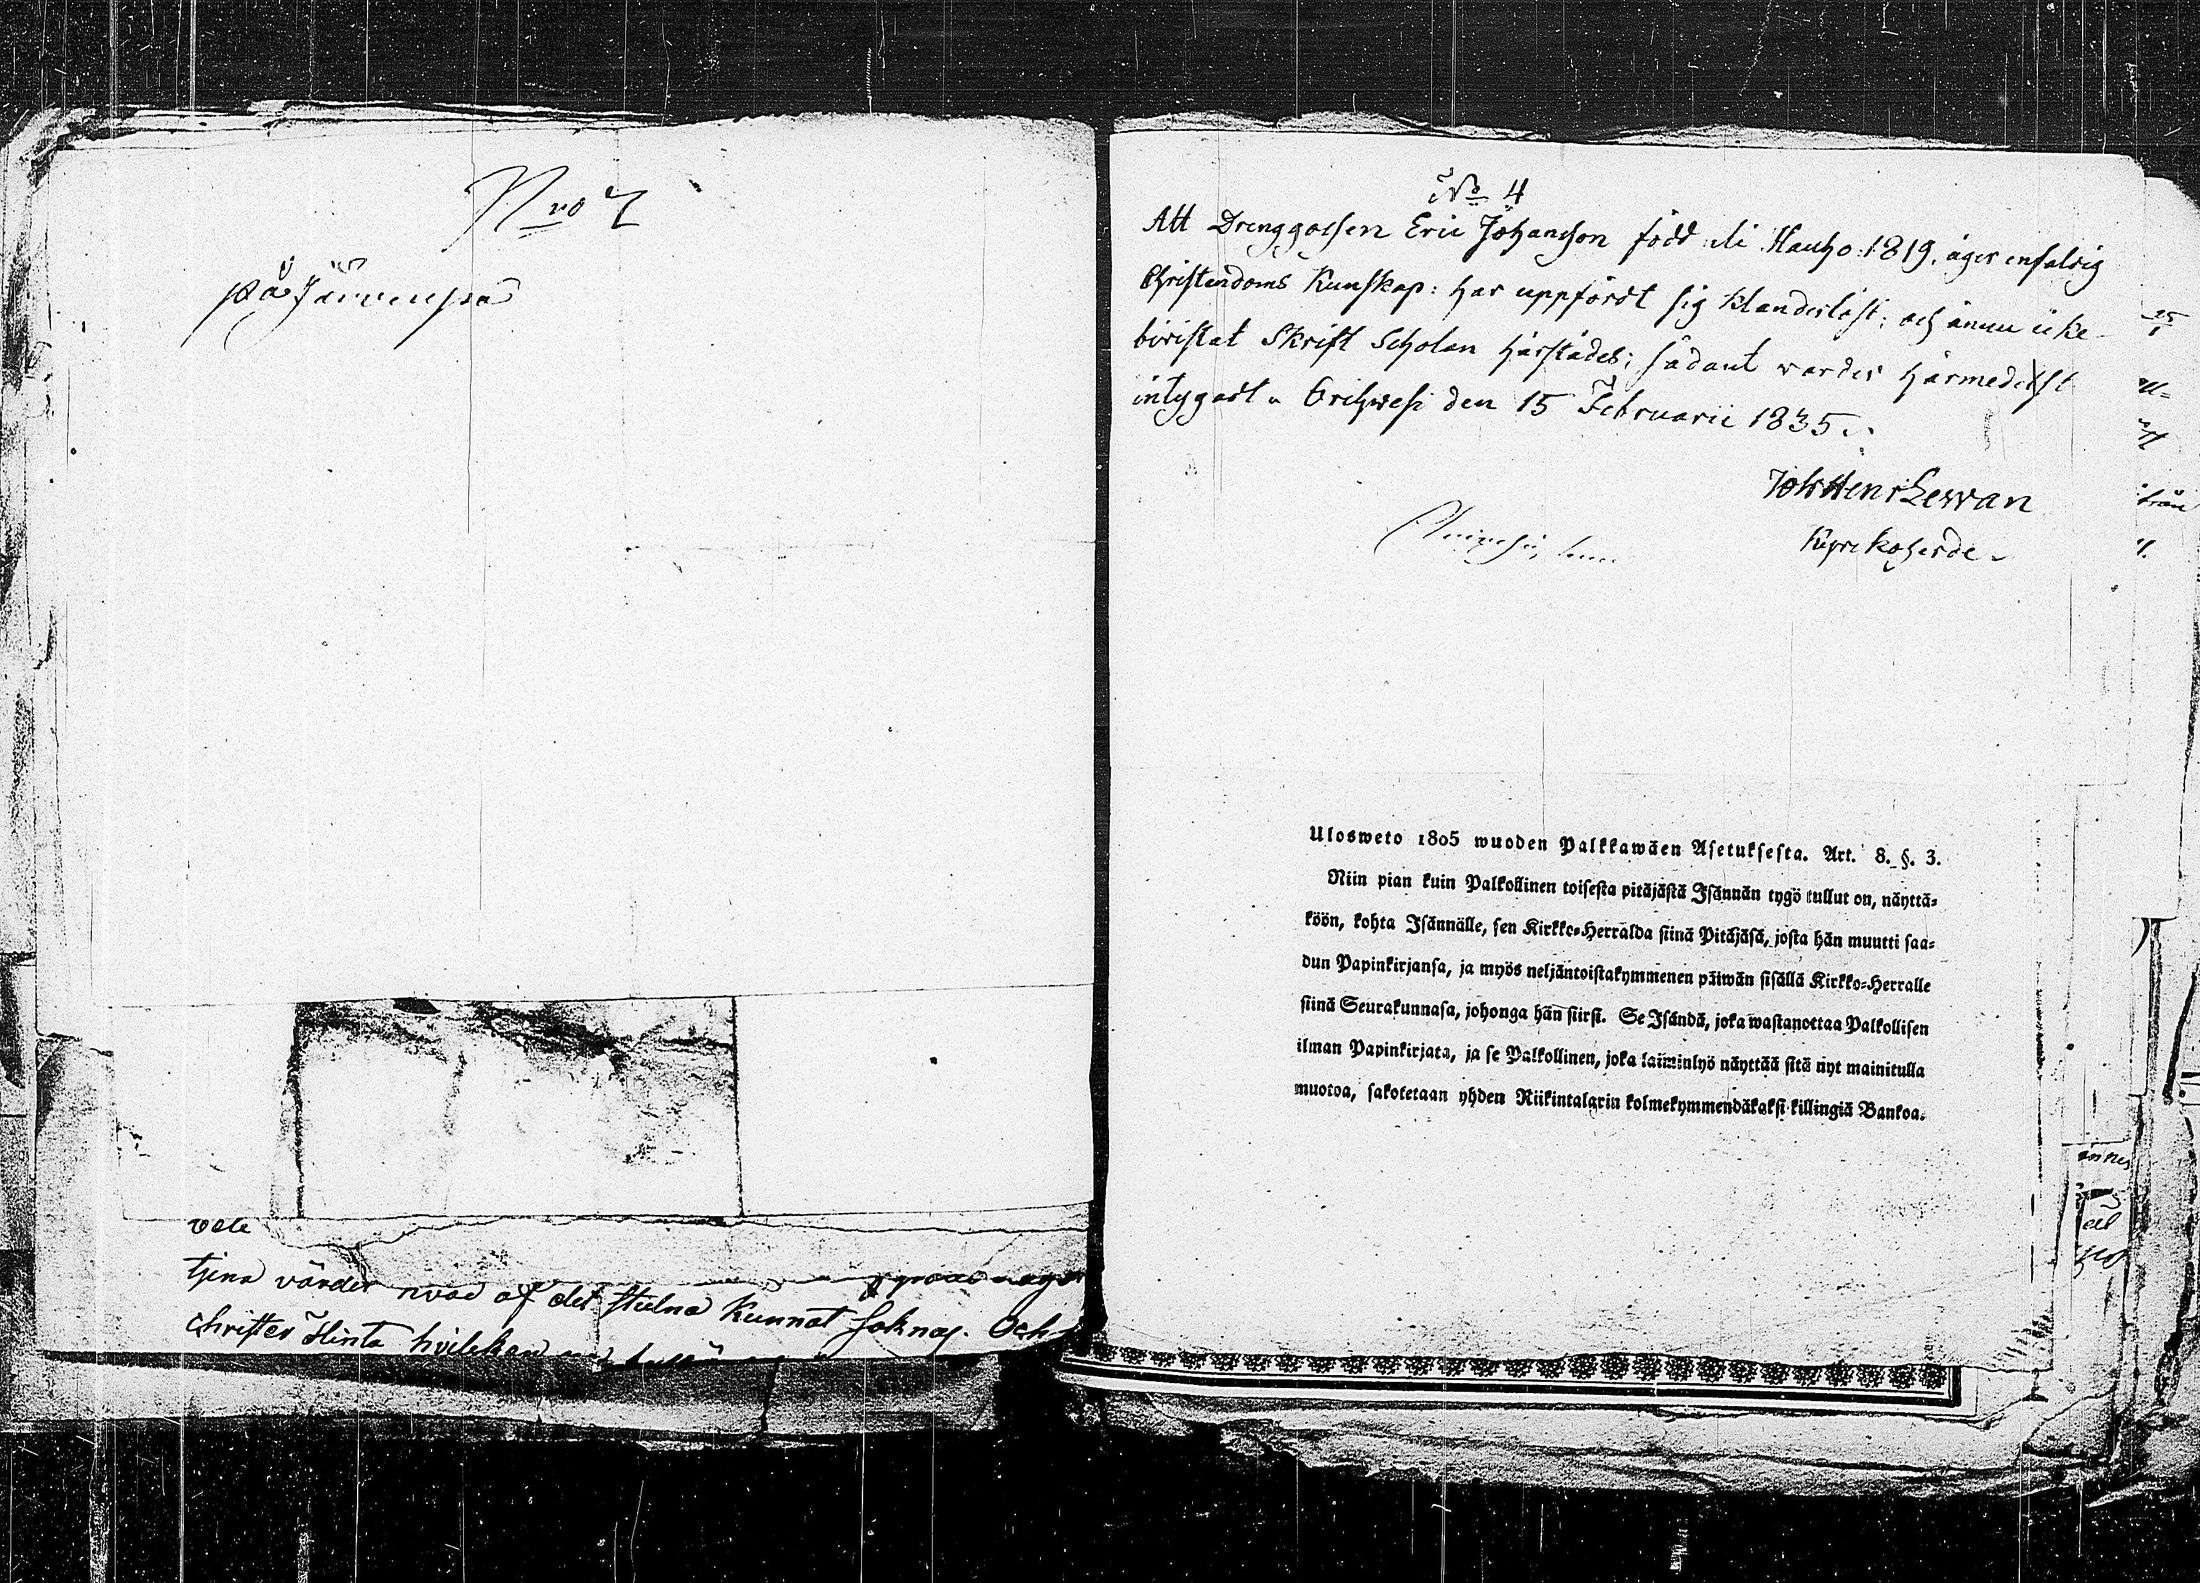 Nro 7
på Järvenpä
No 4
Att Drenggossen Eric Johansson född i Hauho 1819. äger enfaldig
Christendoms Kunskap: har uppfördt sig Klanderlöst; och ännu icke
bivistat Skrift Scholan härstädes; sådant warder härmedelst
intygadt. Orihwesi den 15 Februarii 1835.
Joh Henr Lewan
Kyrckoherde
Ulosweto 1805 wuoden Palkkawäen Asetuksesta. Art. 8. §. 3.
Niin pian kuin Palkollinen toisesta pitäjästä Isännän tygö tullut on, näyttä-
köön, kohta Isännälle, sen Kirkko-Herralda siinä Pitäjäsä, josta hän muutti saa-
dun Papinkirjansa, ja myös neljäntoistakymmenen päiwän sisällä Kirkko-Herralle
siinä Seurakunnasa, johonga hän siirsi. Se Isändä, joka wastanottaa Palkollisen
ilman Papinkirjata, ja se Palkollinen, joka laiminlyö näyttää sitä nyt mainitulla
muotoa, sakotetaan yhden Riikintalarin kolmekymmendäkaksi killingiä Bankoa.
tjena värder hvad af det stulna Kunnat Saknas. Och
christer Hinta hvilekan